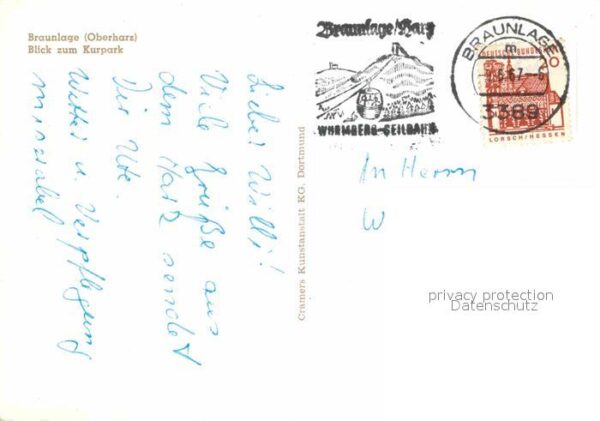 Braunlage (Oberharz)
Blick zum Kurpark
Lieber Willi!
Viele Grüße aus
dem Harz sendet
Dir Ute.
Wetter u. Verpflegung
miserabel
Cramers Kunstanstalt KG. Dortmund
Braunlage/Harz
WURMBERG-SEILBAHN
BRAUNLAGE
m
.6.67.-6
3389
DEUTSCHE BUNDESPOST
LORSCH/HESSEN
An Herrn
W
privacy protection
Datenschutz